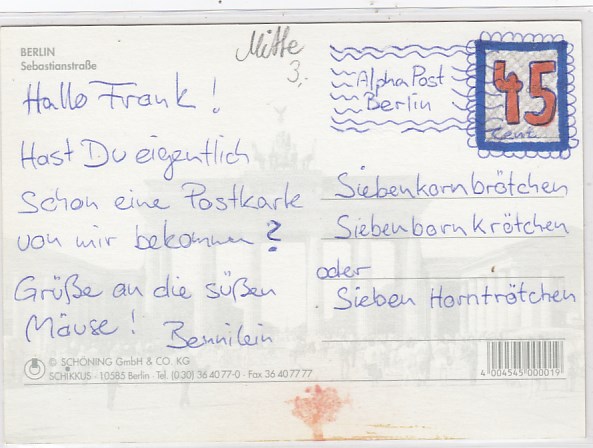 BERLIN
Sebastianstraße
Mitte
3,-
Hallo Frank!
Hast Du eigentlich
schon eine Postkarte
von mir bekommen?
Grüße an die süßen
Mäuse! Bennilein
AlphaPost
Berlin
45
Cent
Siebenkornbrötchen
Siebenbornkrötchen
oder
Sieben Horntrötchen
© SCHÖNING GmbH & CO. KG
SCHIKKUS · 10585 Berlin · Tel. (0 30) 36 40 77-0 · Fax 36 40 77 77
4 004545 000019